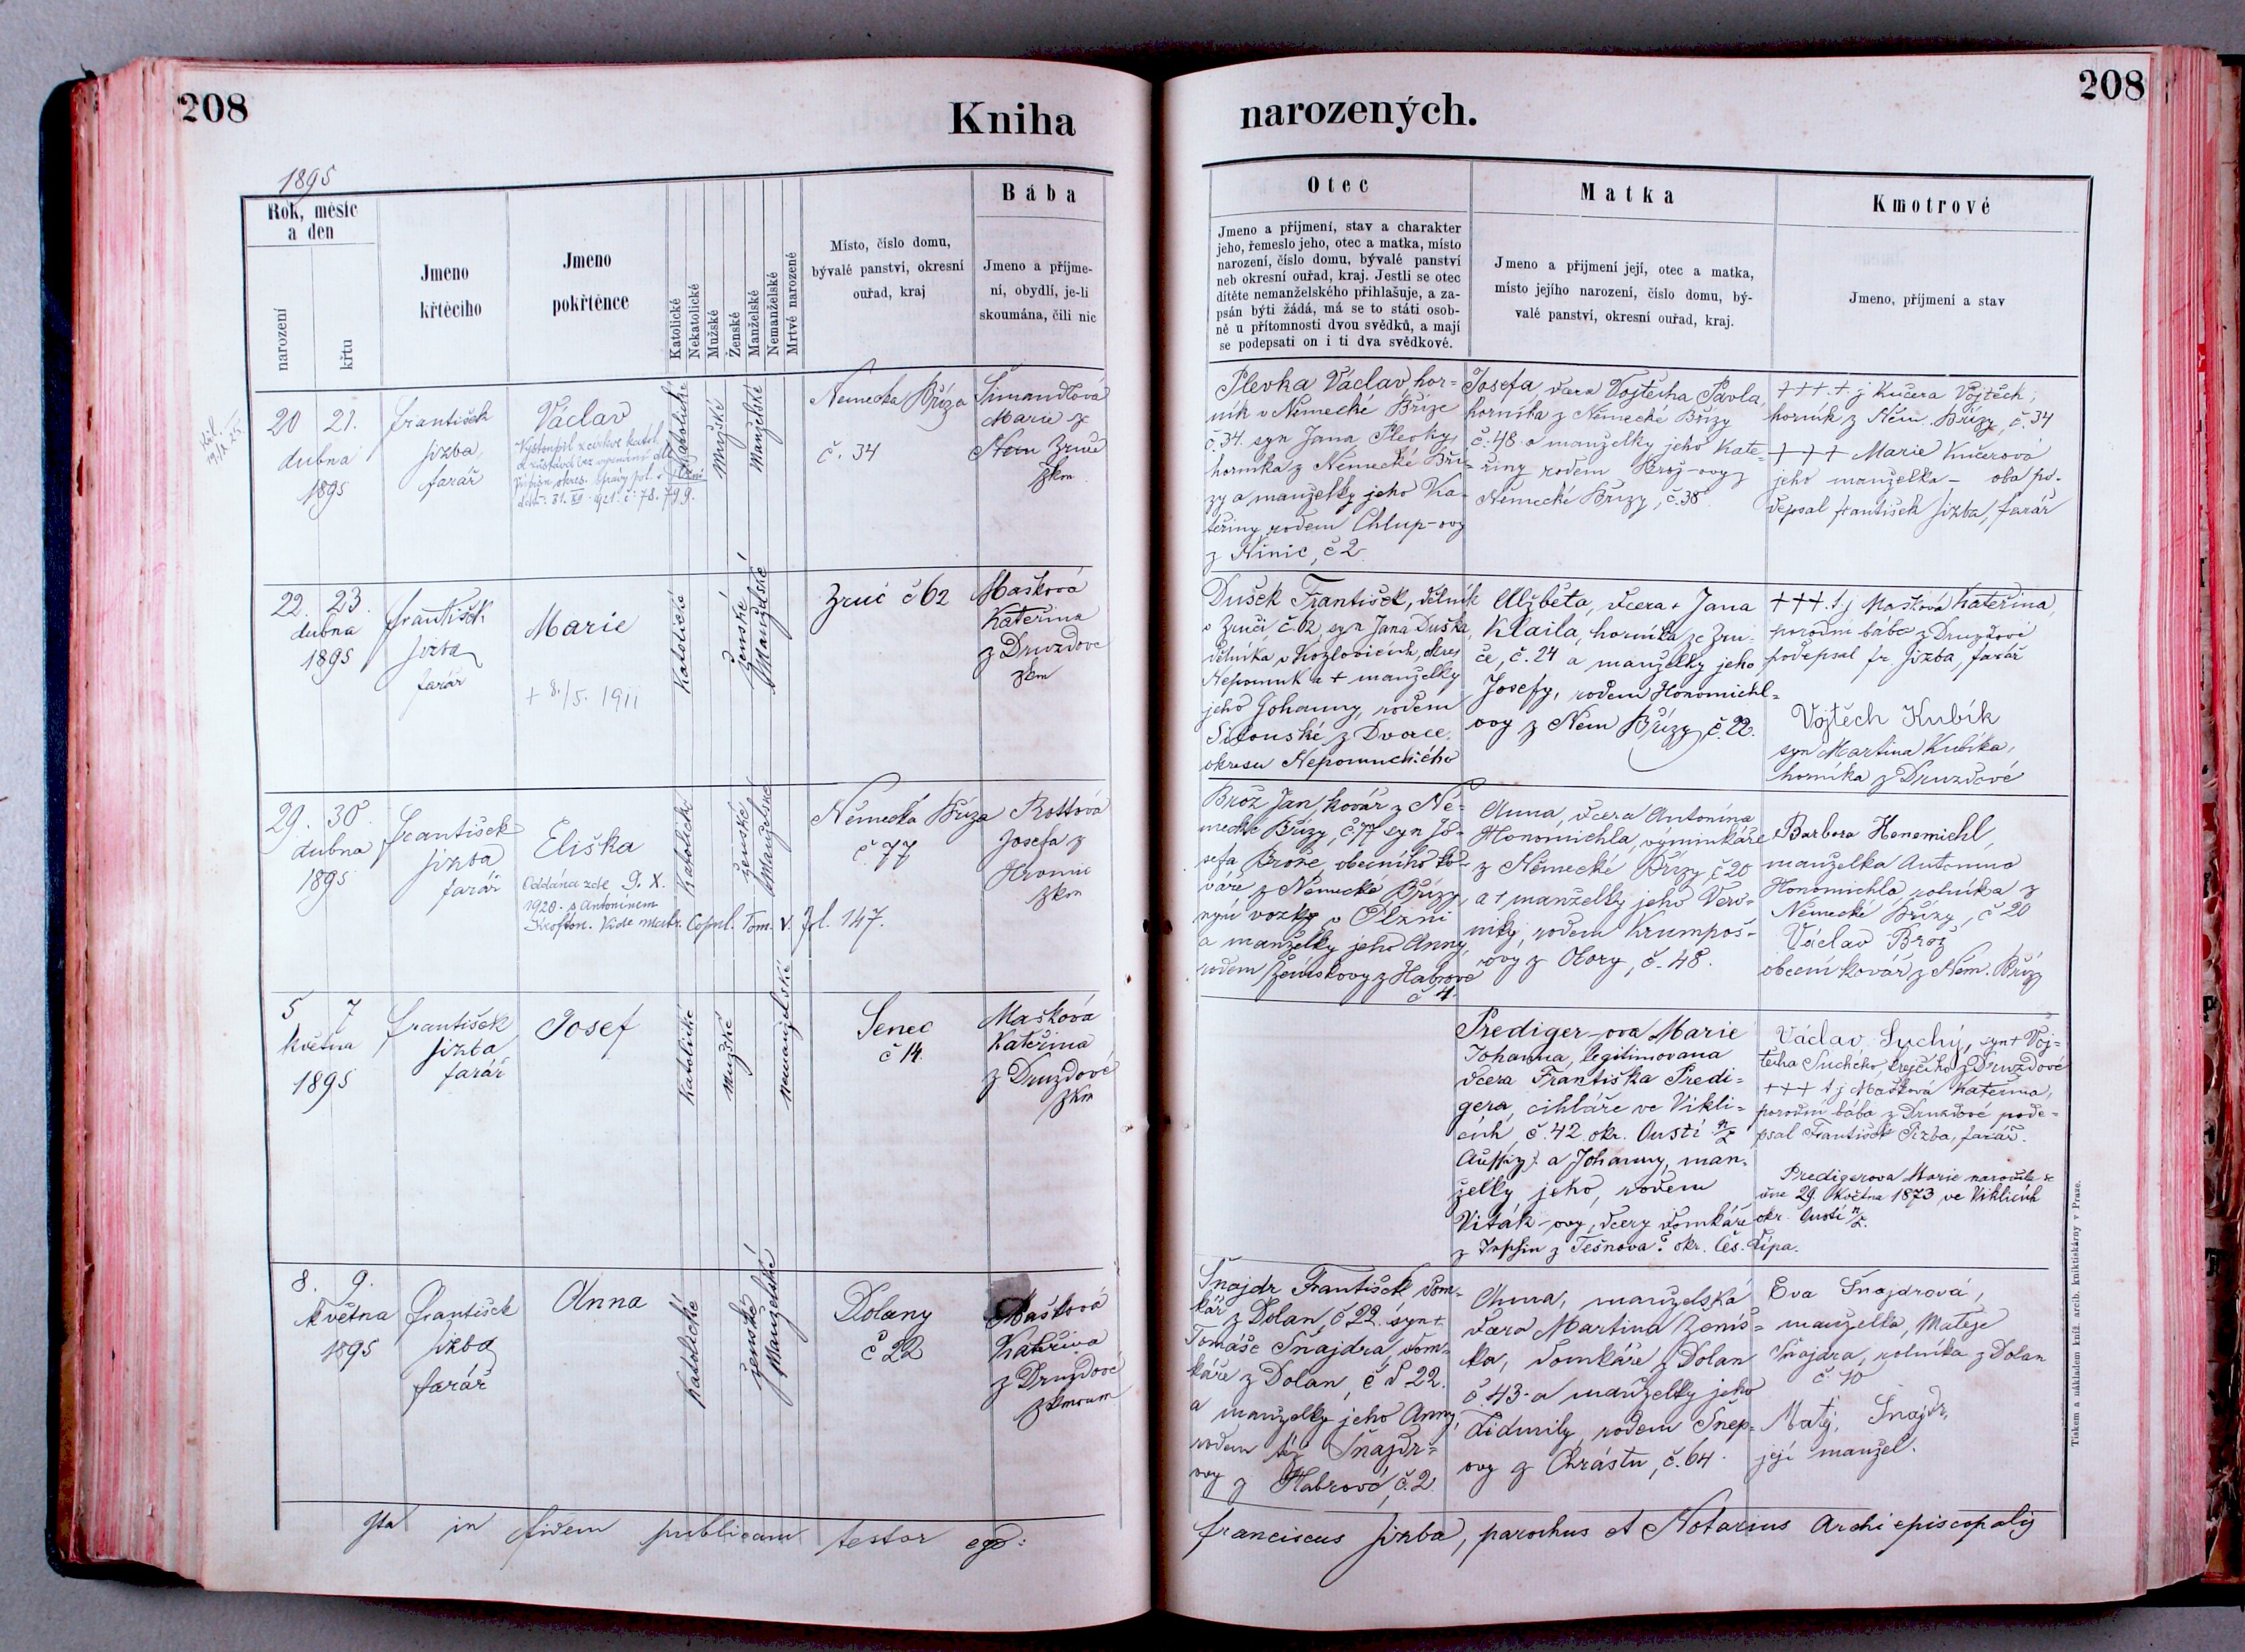 208
Kniha
1895
Rok, měsíc
a den
narození
křtu
Jmeno
křtěcího
Jmeno
pokřtěnce
Katolické
Nekatolické
Mužské
Ženské
Manželské
Nemanželské
Mrtvě narozené
Místo, číslo domu,
bývalé panství, okresní
ouřad, kraj
Bába
Jmeno a příjme-
ní, obydlí, je-li
skoumána, čili nic
20 21.
dubna
1895
František
Jizba,
farář
Václav
Vystoupil z církve katol.
a zůstává bez vyznání dle
okres. správy pol. v Plzni
ddto: 31. XII 1921. č: 78.799.
Katolické
Mužské
Manželské
Německá Bříza
č. 34
Šimandlová
Marie z
Něm Zruč
zkm
22. 23.
dubna
1895
František
Jizba
farář
Marie
+ 8./5. 1911
Katolické
Ženské
Manželské
Zruč č 62
Mašková
Kateřina
z Druzdové
zkm
29. 30.
dubna
1895
František
Jizba
farář
Eliška
Oddána zde 9. X.
1920. s Antonínem
Vide matr. Copul. Tom. V. fol. 147.
Katolické
ženské
Manželské
Německá Bříza
č. 77
Rottová
Josefa z
Hromic
zkm
5 7
Května
1895
František
Jizba
farář
Josef
Katolické
Mužské
Nemanželské
Senec
č 14.
Mašková
Kateřina
z Druzdové
zkm
8. 9.
Května
1895
František
Jizba
farář
Anna
Katolické
Ženské
Manželské
Dolany
č 22
Mašková
Kateřina
z Druzdové
zkmoum
Ita in fidem publicam testor ego:
narozených.
208
Otec
Jmeno a příjmení, stav a charakter
jeho, řemeslo jeho, otec a matka, místo
narození, číslo domu, bývalé panství
neb okresní ouřad, kraj. Jestli se otec
dítěte nemanželského přihlašuje, a za-
psán býti žádá, má se to státi osob-
ně u přítomnosti dvou svědků, a mají
se podepsati on i ti dva svědkové.
Matka
Jmeno a příjmení její, otec a matka,
místo jejího narození, číslo domu, bý-
valé panství, okresní ouřad, kraj.
Kmotrové
Jmeno, příjmení a stav
Plevka Václav, hor=
ník v Německé Bříze
č. 34. syn Jana Plevky,
horníka z Německé Bří-
zy a manželky jeho Ka-
teřiny rodem Chlup-ovy
z Hinic, č 2.
Josefa dcera Vojtěcha Pavla,
horníka z Německé Břízy
č. 48. a manželky jeho Kate=
řiny rodem Brož-ovy z
Německé Břízy, č. 38
+++. t. j Kučera Vojtěch,
horník z Něm. Břízy, č. 34
+++ Marie Kučerová
jeho manželka - oba po-
depsal František Jizba, farář
Dušek František, dělník
v Zruči, č. 62, syn Jana Duška,
dělníka v Kozlovicích, okres
Nepomuk a + manželky
jeho Johanny, rodem
z Dvorce,
okresu Nepomuckého
Alžběta, dcera + Jana
Klaila, horníka ze Zru-
če, č. 24 a manželky jeho
Josefy, rodem Honomichl-
ovy z Něm Břízy, č. 22.
+++. t. j Mašková Kateřina,
porodní bába z Druzdové
podepsal fr. Jizba, farář
Vojtěch Kubík
syn Martina Kubíka,
horníka z Druzdové
Brož Jan, kovář z Ně=
mecké Břízy, č. 77 syn Jo-
sefa Brože, obecního ko-
váře z Německé Břízy,
nyní vozky v Plzni
a manželky jeho Anny,
rodem Ženíškovy z Habrové
č 4.
Anna, dcera Antonína
Honomichla, výminkáře
z Německé Břízy, č 20
a + manželky jeho Vero-
niky, rodem Krumpoš-
ovy z Obory, č. 48.
Barbora Honomichl,
manželka Antonína
Honomichla, rolníka z
Německé Břízy, č 20
Václav Brož
obecní kovář z Něm. Břízy
Prediger-ova Marie
Johanna, legitimovaná
dcera Františka Predi=
gera, cihláře ve Vikli=
cích, č. 42. okr. Oustí n/L
(Aussig) a Johanny, man=
želky jeho, rodem
Viták-ovy, dcery domkáře
z Těšnova? okr. Čes. Lípa.
Václav Suchý, syn + Voj=
těcha Suchého, krejčího z Druzdové
+++ t. j Mašková Kateřina,
porodní bába z Druzdové pode=
psal František Jizba, farář.
Predigerova Marie narodila se
dne 29. Května 1873 ve Viklicích
okr. Oustí n/L.
Šnajdr František, dom-
kář z Dolan, č 22. syn +
Tomáše Šnajdra, dom-
káře z Dolan, č d 22.
a manželky jeho Anny,
rodem též Šnajdr=
ovy z Habrové, č. 2.
Anna, manželská
dcera Martina Ženíš=
ka, domkáře z Dolan
č. 43. a manželky jeho
Lidmily, rodem Šnep=
ovy z Chrástu, č. 64.
Eva Šnajdrová,
manželka Matěje
Šnajdra, rolníka z Dolan
č. 10
Matěj Šnajdr,
její manžel.
Franciscus Jizba, parochus et Notarius Archiepiscopalis
Tiskem a nákladem kníž. arcib. knihtiskárny v Praze.